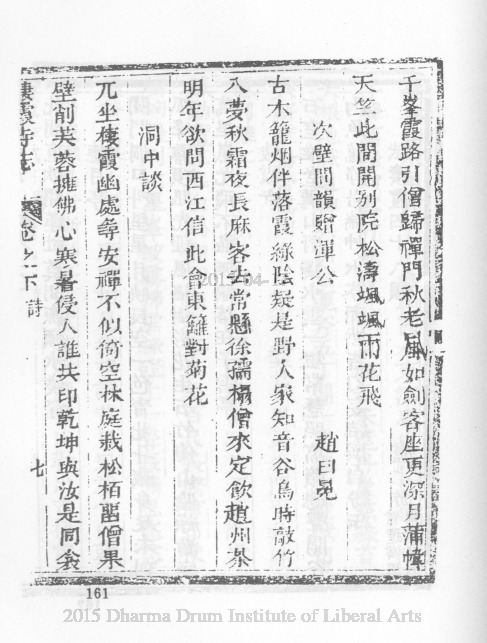 千峯霞路引僧歸禪門秋老風如劍客座更深月蒲幃
天竺此間開别院松濤颯颯雨花飛
次壁間韻贈渾公
趙曰冕
古木籠烟伴落霞綠陰疑是野人家知音谷鳥時敲竹
入夢秋霜夜長麻客去常懸徐孺榻僧來定飲趙州茶
明年欲問西江信此會東籬對菊花
洞中談
兀坐棲霞幽處尋安禪不似倚空林庭栽松栢畱僧果
壁削芙蓉擁佛心寒暑侵人誰共印乾坤與汝是同衾
棲霞寺志
卷之下 詩
七
161
2015 Dharma Drum Institute of Liberal Arts